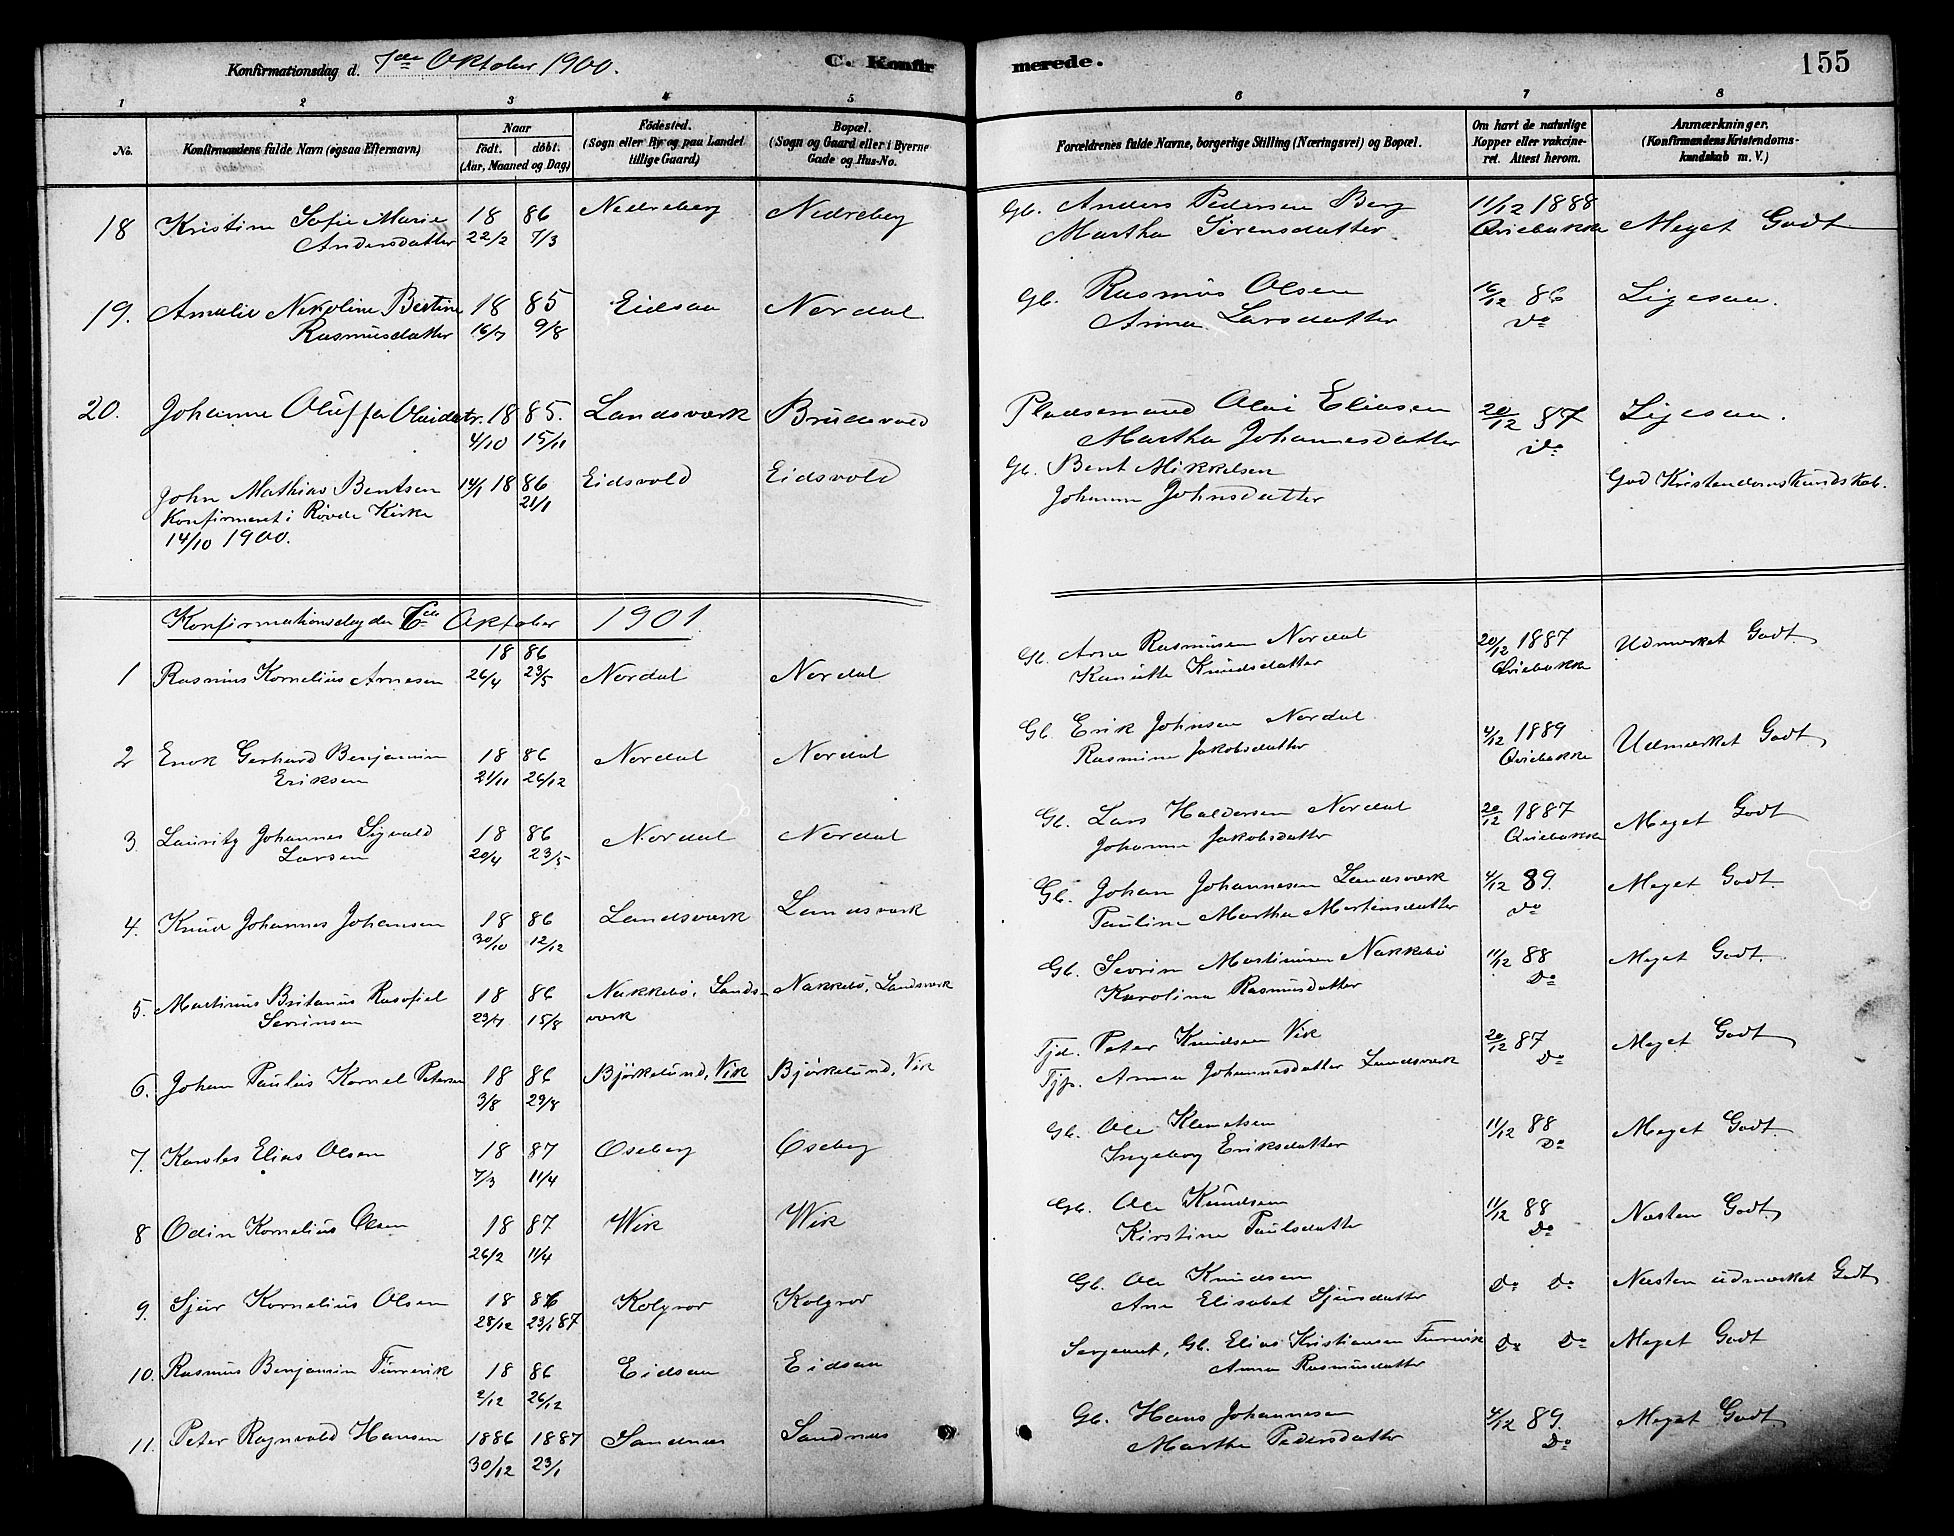 Konfirmationsdag d. 7de Oktober 1900.
C. Konfirmerede.
155
1 2 3 4 5 6 7 8
No.
Konfirmandens fulde Navn (ogsaa Efternavn)
Naar
födt. döbt.
(Aar, Maaned og Dag)
Födested.
(Sogn eller By og paa Landet
tillige Gaard)
Bopæl.
(Sogn og Gaard eller i Byerne
Gade og Hus-No.
Forældrenes fulde Navne, borgerlige Stilling (Næringsvei) og Bopæl.
Om havt de naturlige
Kopper eller vakcine-
ret. Attest herom.
Anmærkninger.
(Konfirmandens Kristendoms-
kundskab m. V.)
18 Kristine Sofie Marie 18 86 Nedreberg Nedreberg Gb. Anders Pedersen Berg 11/12 1888
Andersdatter 22/2 7/3 Martha Sørensdatter Qviebakke Meget Godt
19. Amalie Nikoline Bertine 18 85 Eidsaa Nordal Gb. Rasmus Olsen 16/12 86 Ligesaa.
Rasmusdatter 16/7 9/8 Anna Larsdatter Do
20. Johanne Oluffa Olaidatr. 18 85. Landsværk Brudevold Pladsemand Olai Eliasen 20/12 87 Ligesaa.
4/10 15/11 Martha Johannesdatter Do
John Mathias Bentsen 14/1 18 86 Eidsvold Eidsvold Gb. Bent Mikkelsen God Kristendomskundskab.
21/1 Johanne Johnsdatter
Konfirmeret i Røvde Kirke
14/10 1900.
Konfirmationsdag den 6te Oktober 1901
1 Rasmus Kornelius Arnesen 18 86 Nordal Nordal Gb. Arne Rasmusen Nordal 20/12 1887 Udmærket Godt
26/4 23/5 Kanutte Knudsdatter Qviebakke
2 Enok Gerhard Benjamin 18 86 Nordal Nordal Gb. Erik Johnsen Nordal 4/12 1889 Udmærket Godt
Eriksen 21/11 26/12 Rasmine Jakobsdatter Qviebakke
3. Lauritz Johannes Sigvald 18 86 Nordal Nordal Gb. Lars Haldorsen Nordal 20/12 1887 Meget Godt
Larsen 20/4 23/5 Johanne Jakobsdatter Qviebakke
4. Knud Johannes Johansen 18 86 Landsværk Landsværk Gb. Johan Johannesen Landsværk 4/12 89. Meget Godt
30/10 12/12 Pauline Martha Martinsdatter Do
5. Martinus Britanus Rasofiel 18 86 Nakkebö, Lands- Nakkebö, Landsværk Gb. Severin Martinusen Nakkebö 11/12 88 Meget Godt
Severinsen 23/7 15/8 værk Karolina Rasmusdatter Do
6. Johan Paulus Kornel Petersen 18 86 Björkelund, Vik Björkelund, Vik Tjd. Peter Knudsen Vik 20/12 87 Meget Godt
3/8 29/8 Tjp. Anna Johannesdatter Landsværk Do
7. Karoles Elias Olsen 18 87 Oseberg Oseberg Gb. Ole Klemetsen 11/12 88 Meget Godt
7/3 11/4 Ingeborg Eriksdatter Do
8 Odin Kornelius Olsen 18 87 Wik Wik Gb. Ole Knudsen 11/12 88 Næsten Godt
26/2 11/4 Kirstine Paulsdatter Do
9. Sjur Kornelius Olsen 18 86 Kolgrov Kolgrov Gb. Ole Knudsen Do Do Næsten udmærket Godt
28/12 23/1 87 Ane Elisabet Sjursdatter
10. Rasmus Benjamin Furrevik 18 86 Eidsaa Eidsaa Sergeant, Gb. Elias Kristiansen Furrevik Do Do Meget Godt
2/12 26/12 Anna Rasmusdatter
11. Peter Ragnvald Hansen 1886 1887 Sandnæs Sandnæs Gb. Hans Johannesen 4/12 89. Meget Godt
30/12 23/1 Marthe Pedersdatter Do